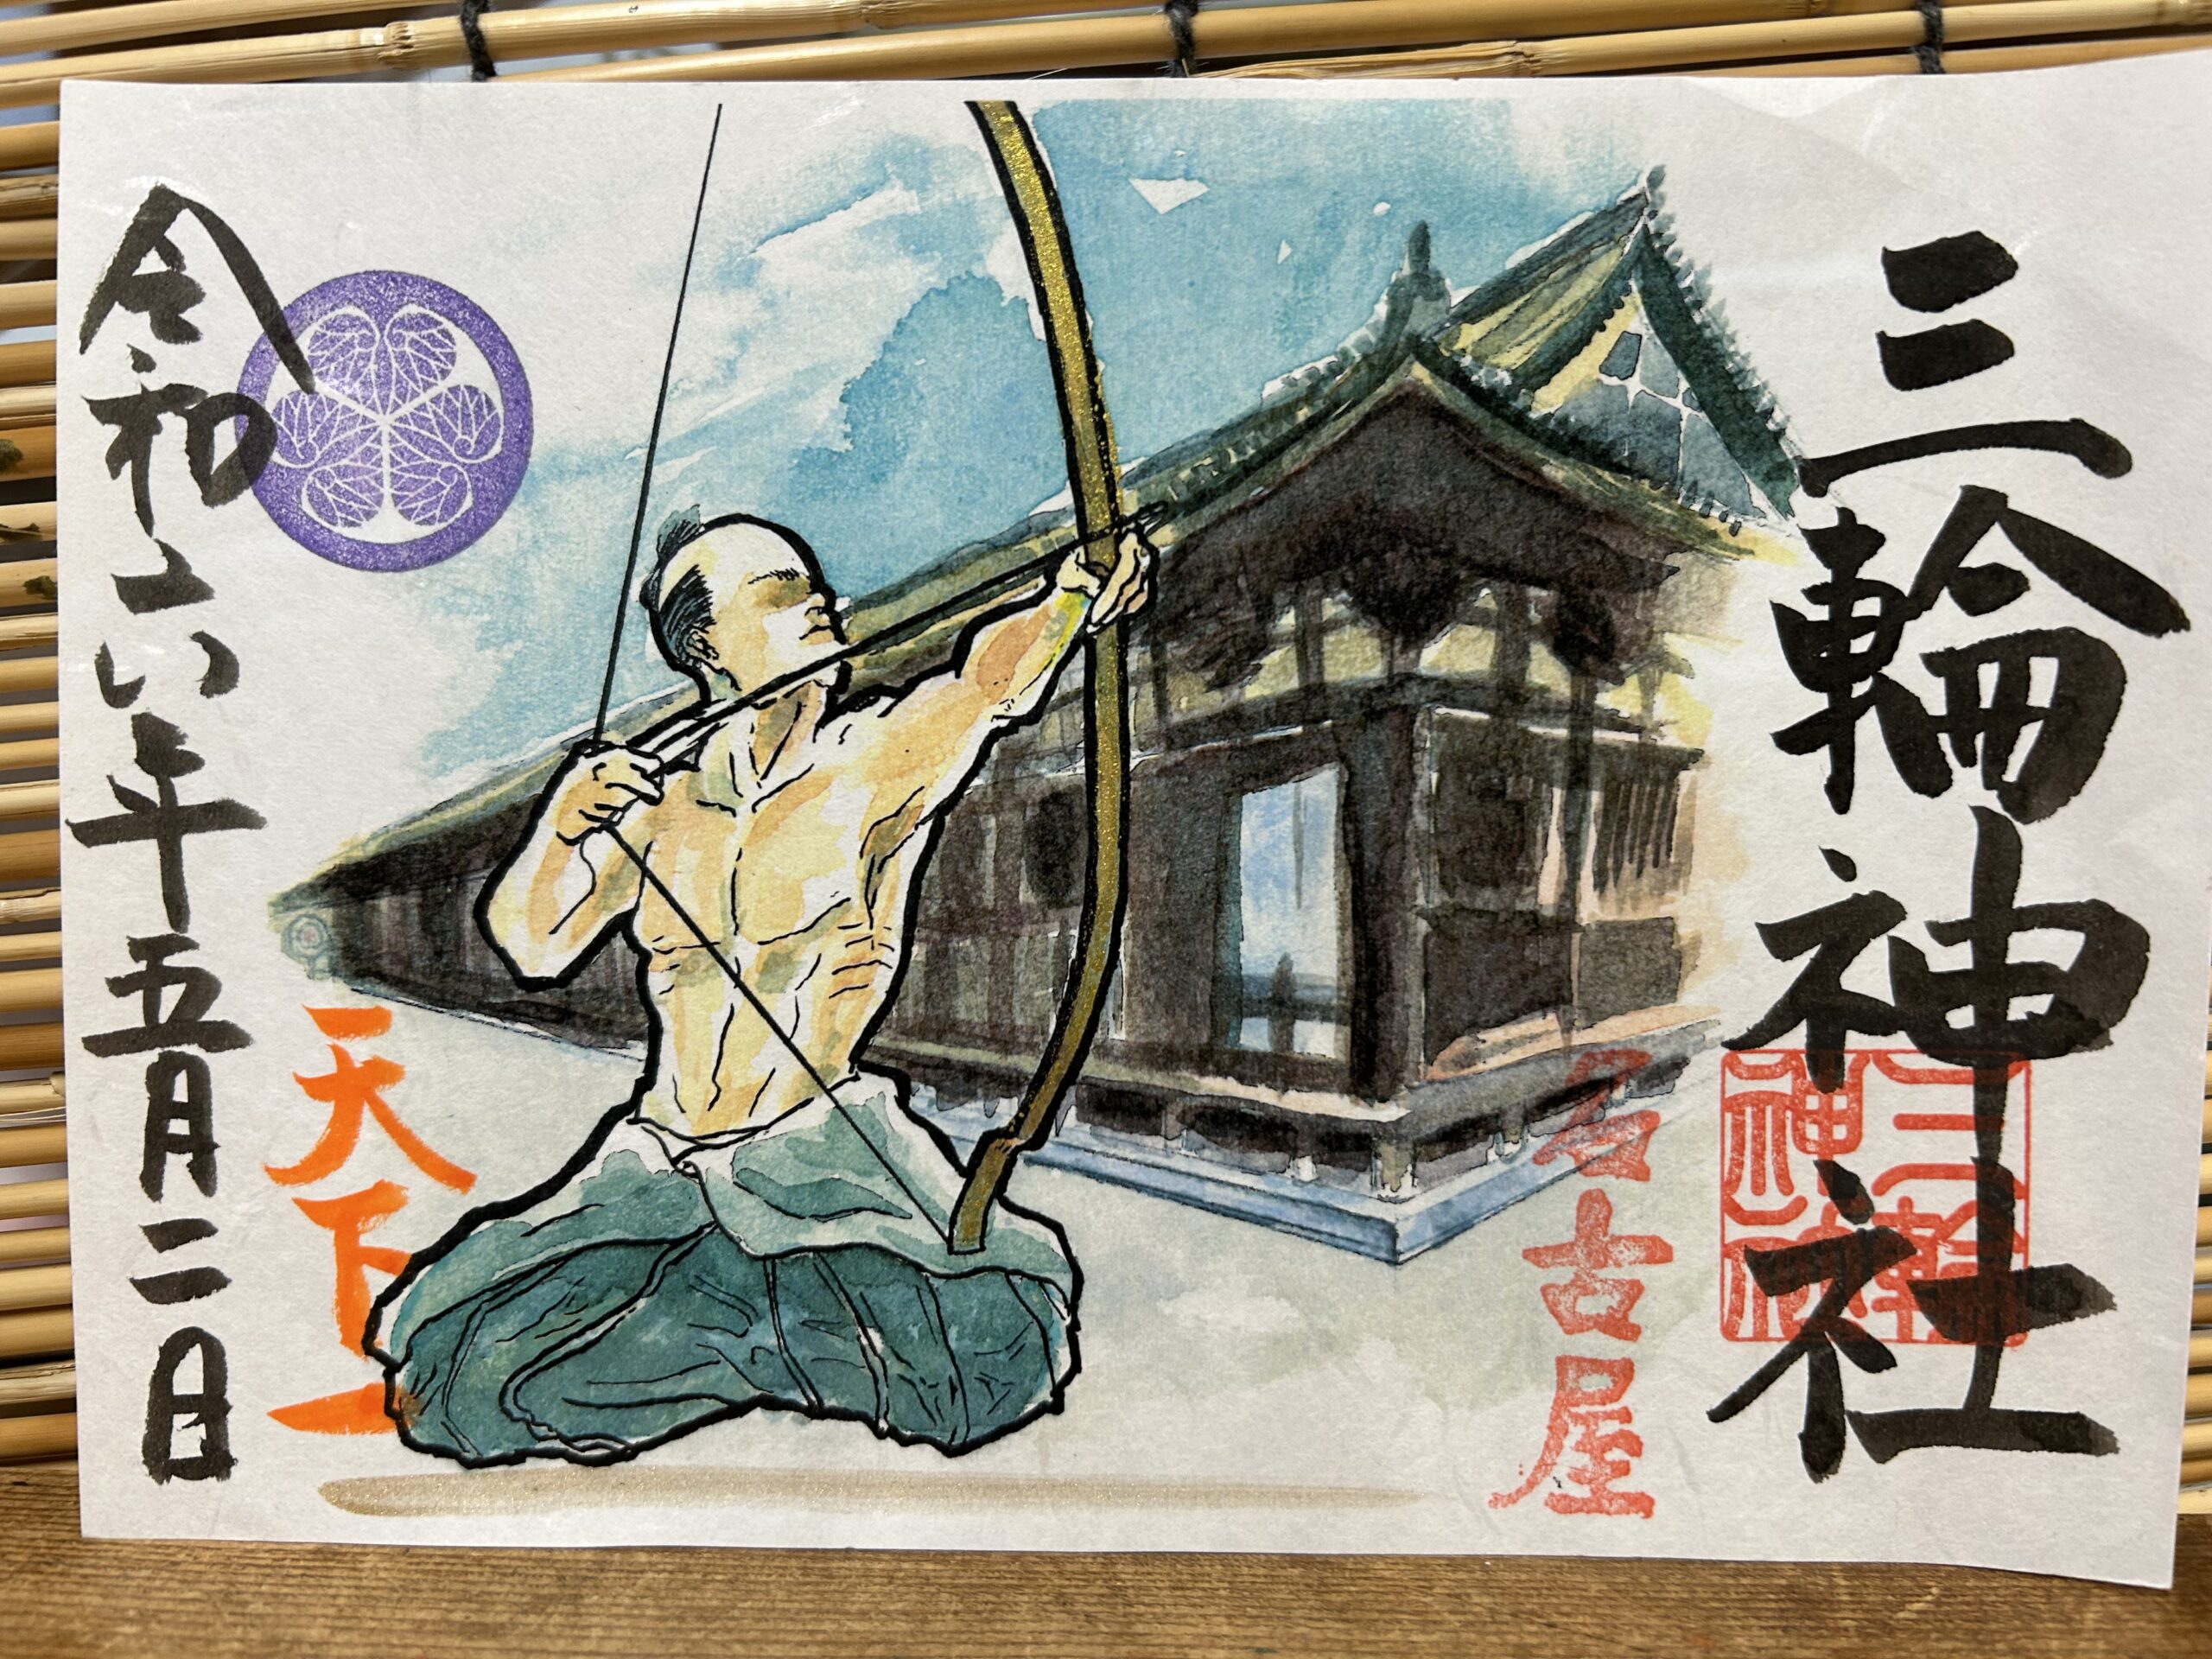 三輪神社
三輪神社
名古屋
天下一
令和六年五月二日